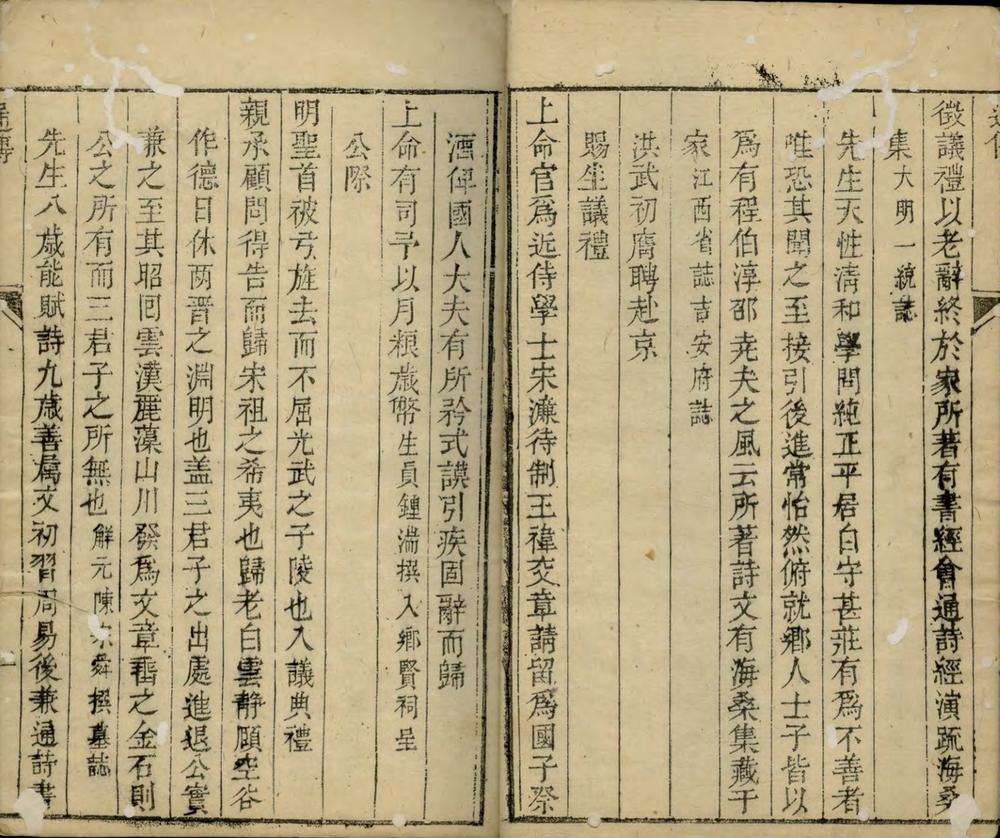 徵議禮以老辭終於家所著有書經會通詩經演疏海桑
集大明一統誌
先生天性清和學問純正平居自守甚莊有為不善者
惟恐其聞之至接引後進常怡然俯就鄉人士子皆以
為有程伯淳邵堯夫之風云所著詩文有海桑集藏于
家江西省誌吉安府誌
洪武初膺聘赴京
賜坐議禮
上命官為近侍學士宋濂待制王禕交章請留為國子祭
酒俾國人大夫有所矜式謨引疾固辭而歸
上命有司予以月粮歲幣生員鍾湍撰入鄉賢祠呈
公際
明聖首被弓旌去而不屈光武之子陵也入議典禮
親承顧問得告而歸宋祖之希夷也歸老白雲靜願空谷
作德日休兩晋之淵明也盖三君子之出處進退公實
兼之至其昭回雲漢麗藻山川發為文章播之金石則
公之所有而三君子之所無也解元陳 舜撰墓誌
先生八歲能賦詩九歲善屬文初習周易後兼通詩書